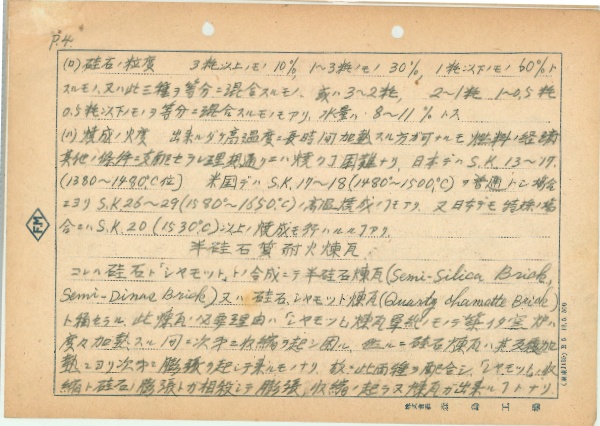 P.4.
(ロ) 硅石ノ粒度 3粍以上ノモノ 10%, 1~3粍ノモノ 30%, 1粍以下ノモノ 60%ト
スルモノ、又ハ此三種ヲ等分ニ混合スルモノ、或ハ3~2粍, 2~1粍 1~0.5粍
0.5粍以下ノモノヲ等分ニ混合スルモノモアリ, 水量ハ 8~11%トス
(ハ) 焼成ノ火度 出来ルダケ高温度ニ長時間加熱スル方ガ可ナルモ 燃料ノ経済
其他ノ條件ニ支配セラレ理想通リニハ焼クヿ困難ナリ, 日本デハ S.K. 13~17,
(1380~1480°C位) 米国デハ S.K. 17~18 (1480°~1500°C) ヲ普通トシ場合
ニヨリ S.K 26~29 (1580°~1650°C) ノ高温焼成ノヿモアリ 又日本デモ 特殊ノ場
合ニハ S.K. 20 (1530°C)以上ノ焼成モ行ハルルヿアリ,
半硅石質耐火煉瓦
コレハ硅石ト「シヤモツト」トノ合成ニテ半硅石煉瓦 (Semi-Silica Brick,
Semi-Dinas Brick) 又ハ硅石、シヤモツト煉瓦 (Quartz chamotte Brick)
ト称セラル, 此煉瓦ノ必要理由ハ「シヤモツト」煉瓦単純ノモノデ築イタ窯炉ハ
度々加熱スル間ニ次第ニ収縮ヲ起シ困ル, 然ルニ硅石煉瓦ハ其反対加
熱ニヨリ次第ニ膨張ヲ起シテ来ルモノナリ, 故ニ此両種ヲ配合シ、「シヤモツト」ノ収
縮ト硅石ノ膨張トガ相殺シテ膨張、収縮ノ起ラヌ煉瓦ガ出来ルヿトナリ
FM
株式会社 品島工